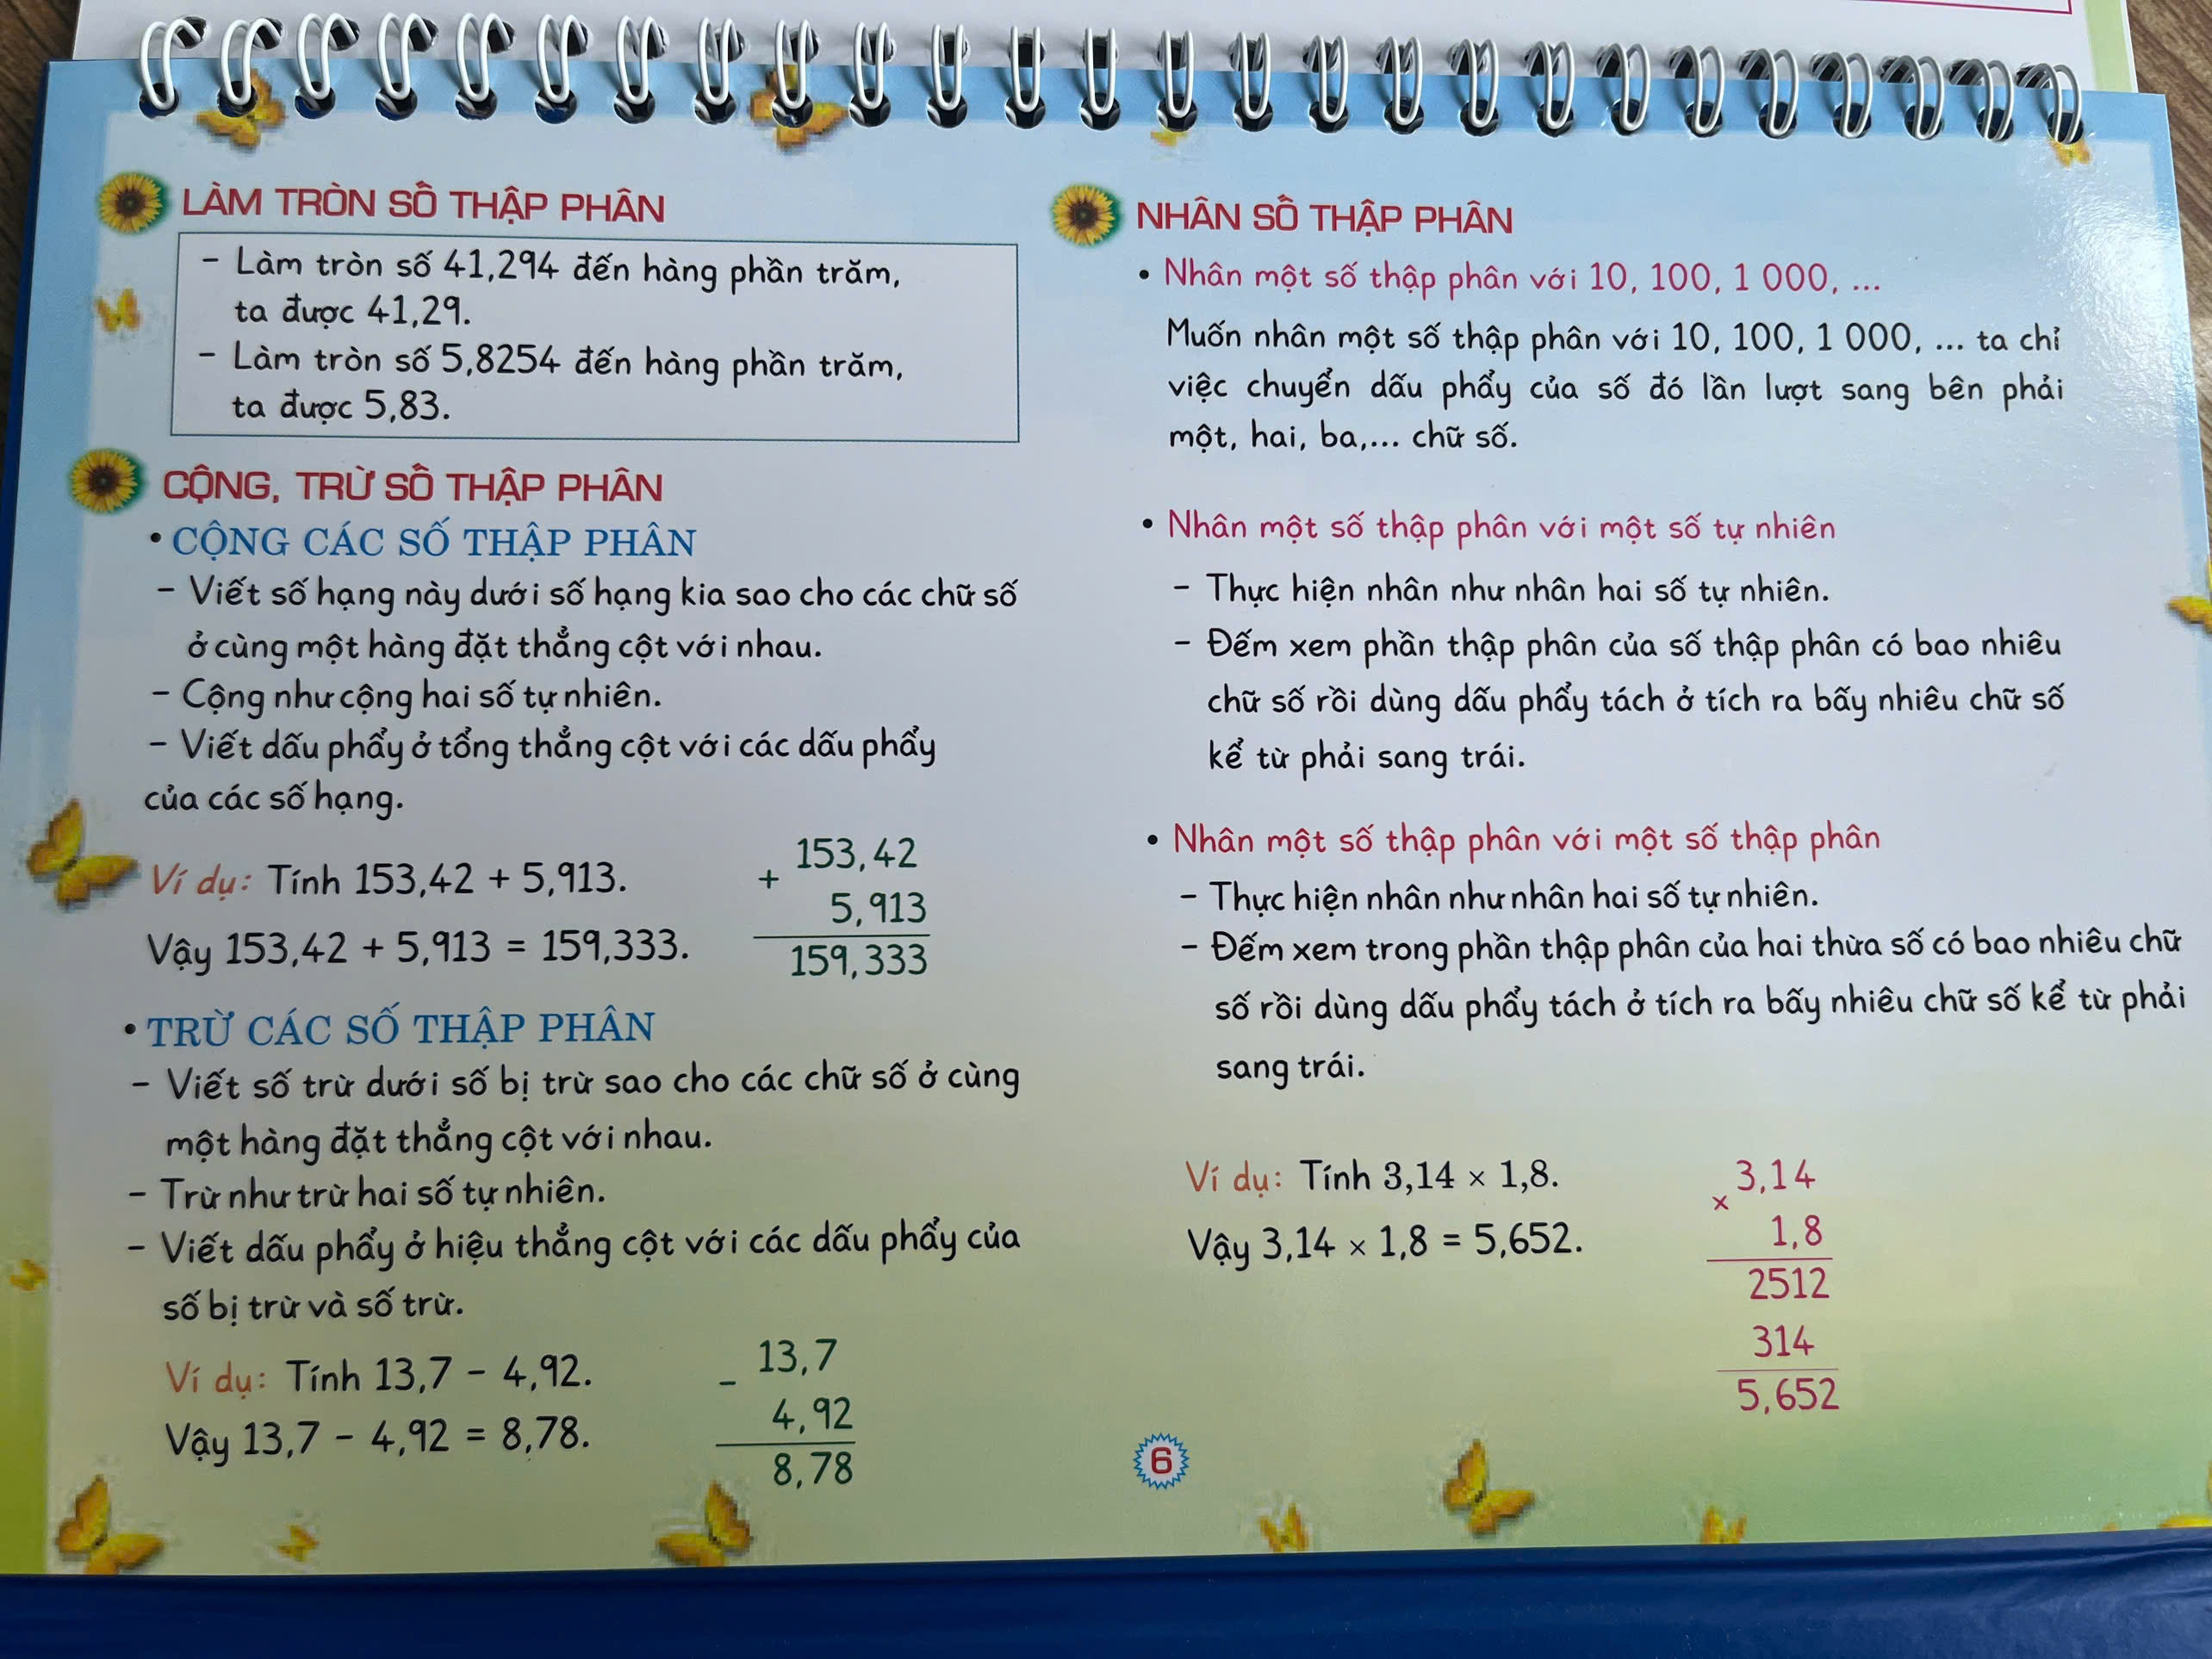 LÀM TRÒN SỐ THẬP PHÂN
– Làm tròn số 41,294 đến hàng phần trăm,
ta được 41,29.
– Làm tròn số 5,8254 đến hàng phần trăm,
ta được 5,83.
CỘNG, TRỪ SỐ THẬP PHÂN
• CỘNG CÁC SỐ THẬP PHÂN
– Viết số hạng này dưới số hạng kia sao cho các chữ số
ở cùng một hàng đặt thẳng cột với nhau.
– Cộng như cộng hai số tự nhiên.
– Viết dấu phẩy ở tổng thẳng cột với các dấu phẩy
của các số hạng.
Ví dụ: Tính 153,42 + 5,913.
Vậy 153,42 + 5,913 = 159,333.
153,42
+
5,913
159,333
• TRỪ CÁC SỐ THẬP PHÂN
– Viết số trừ dưới số bị trừ sao cho các chữ số ở cùng
một hàng đặt thẳng cột với nhau.
– Trừ như trừ hai số tự nhiên.
– Viết dấu phẩy ở hiệu thẳng cột với các dấu phẩy của
số bị trừ và số trừ.
Ví dụ: Tính 13,7 – 4,92.
Vậy 13,7 – 4,92 = 8,78.
13,7
–
4,92
8,78
NHÂN SỐ THẬP PHÂN
• Nhân một số thập phân với 10, 100, 1 000, ...
Muốn nhân một số thập phân với 10, 100, 1 000, ... ta chỉ
việc chuyển dấu phẩy của số đó lần lượt sang bên phải
một, hai, ba,... chữ số.
• Nhân một số thập phân với một số tự nhiên
– Thực hiện nhân như nhân hai số tự nhiên.
– Đếm xem phần thập phân của số thập phân có bao nhiêu
chữ số rồi dùng dấu phẩy tách ở tích ra bấy nhiêu chữ số
kể từ phải sang trái.
• Nhân một số thập phân với một số thập phân
– Thực hiện nhân như nhân hai số tự nhiên.
– Đếm xem trong phần thập phân của hai thừa số có bao nhiêu chữ
số rồi dùng dấu phẩy tách ở tích ra bấy nhiêu chữ số kể từ phải
sang trái.
Ví dụ: Tính 3,14 × 1,8.
Vậy 3,14 × 1,8 = 5,652.
3,14
×
1,8
2512
314
5,652
6